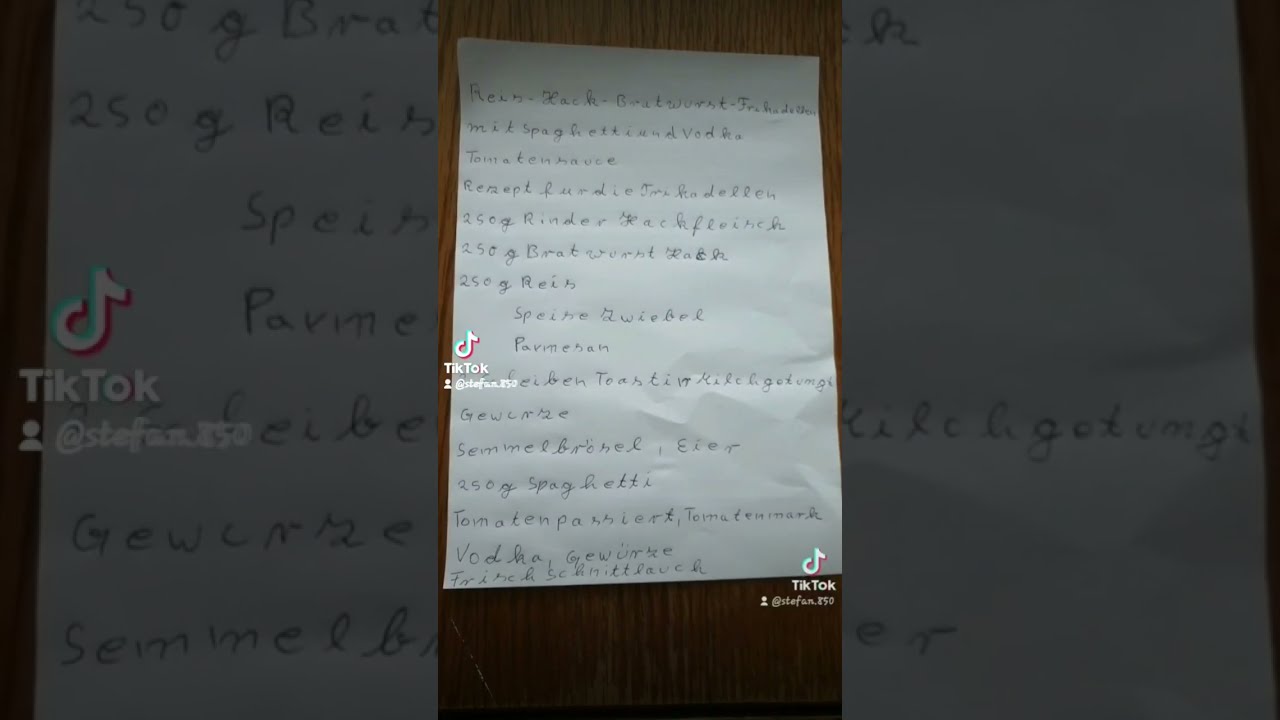 Reis-Hack-Bratwurst-Frikadellen
mit Spaghetti und Vodka
Tomatensauce
Rezept fur die Frikadellen
250g Rinder Hackfleisch
250g Bratwurst Hack
250g Reis
Speise Zwiebel
Parmesan
eiben Toast in
Gewürze
Semmelbrösel, Eier
250g Spaghetti
Tomaten passiert, Tomatenmark
Vodka, Gewürze
Frisch Schnittlauch
TikTok
@stefan.850
TikTok
@stefan.850
TikTok
@stefan.850